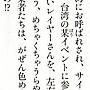 にお呼ばれされ、サイ
台湾の某イベントに参
いレイヤーさんを、左
う、めちゃくちゃうらや
者たちは、がぜん色め
の!?